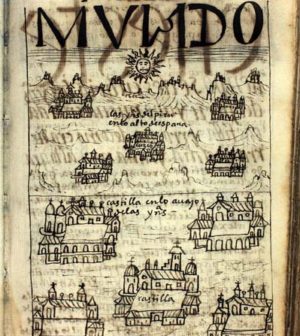 MVNDO
las yns del piru
enlo alto despaña
castilla enlo auajo
delas yns
castilla